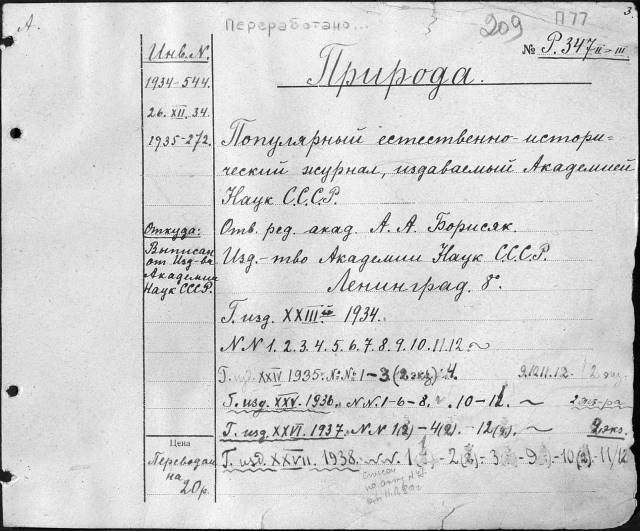 А.
Переработано...
209
П 77
3.
№ Р.347 II-III
Природа.
Инв. N.
1934-544.
26. XII. 34.
1935-272.
Популярный естественно-истори=
ческий журнал, издаваемый Академией
Наук С.С.С.Р.
Откуда:
Выписан
от Изд-ва
Академии
Наук СССР.
Отв. ред. акад. А. А. Борисяк.
Изд.-тво Академии Наук С.С.С.Р.
Ленинград. 8°.
Г. изд. XXIII 1934.
N N 1. 2. 3. 4. 5. 6. 7. 8. 9. 10. 11. 12. ~
Г. изд. XXIV 1935. № № 1-3 (2 экз) 4. 9.10.11.12. 2 экз.
Г. изд. XXV. 1936. N N 1-6-8. 10-12. ~
Г. изд. XXVI. 1937. N N 1(2) - 4(2). -12(2). ~ 2 экз.
Цена
Переводам
на
20 р.
Г. изд. XXVII. 1938. N. N. 1 - 2 - 3 - 9 - 10(2). - 11/12